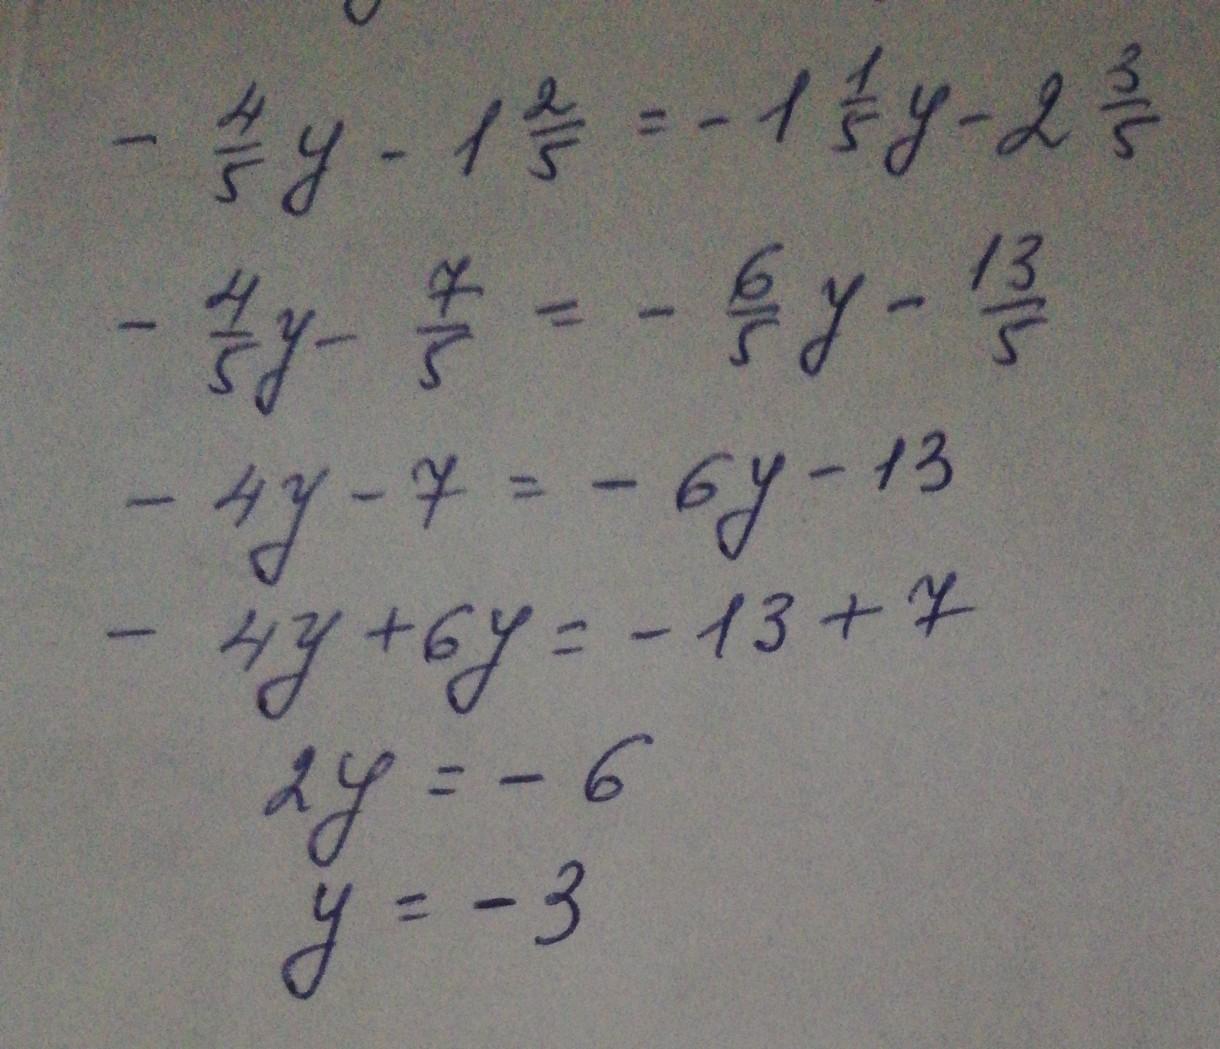 - 4/5 y - 1 2/5 = - 1 1/5 y - 2 3/5
- 4/5 y - 7/5 = - 6/5 y - 13/5
- 4y - 7 = - 6y - 13
- 4y + 6y = - 13 + 7
2y = - 6
y = - 3